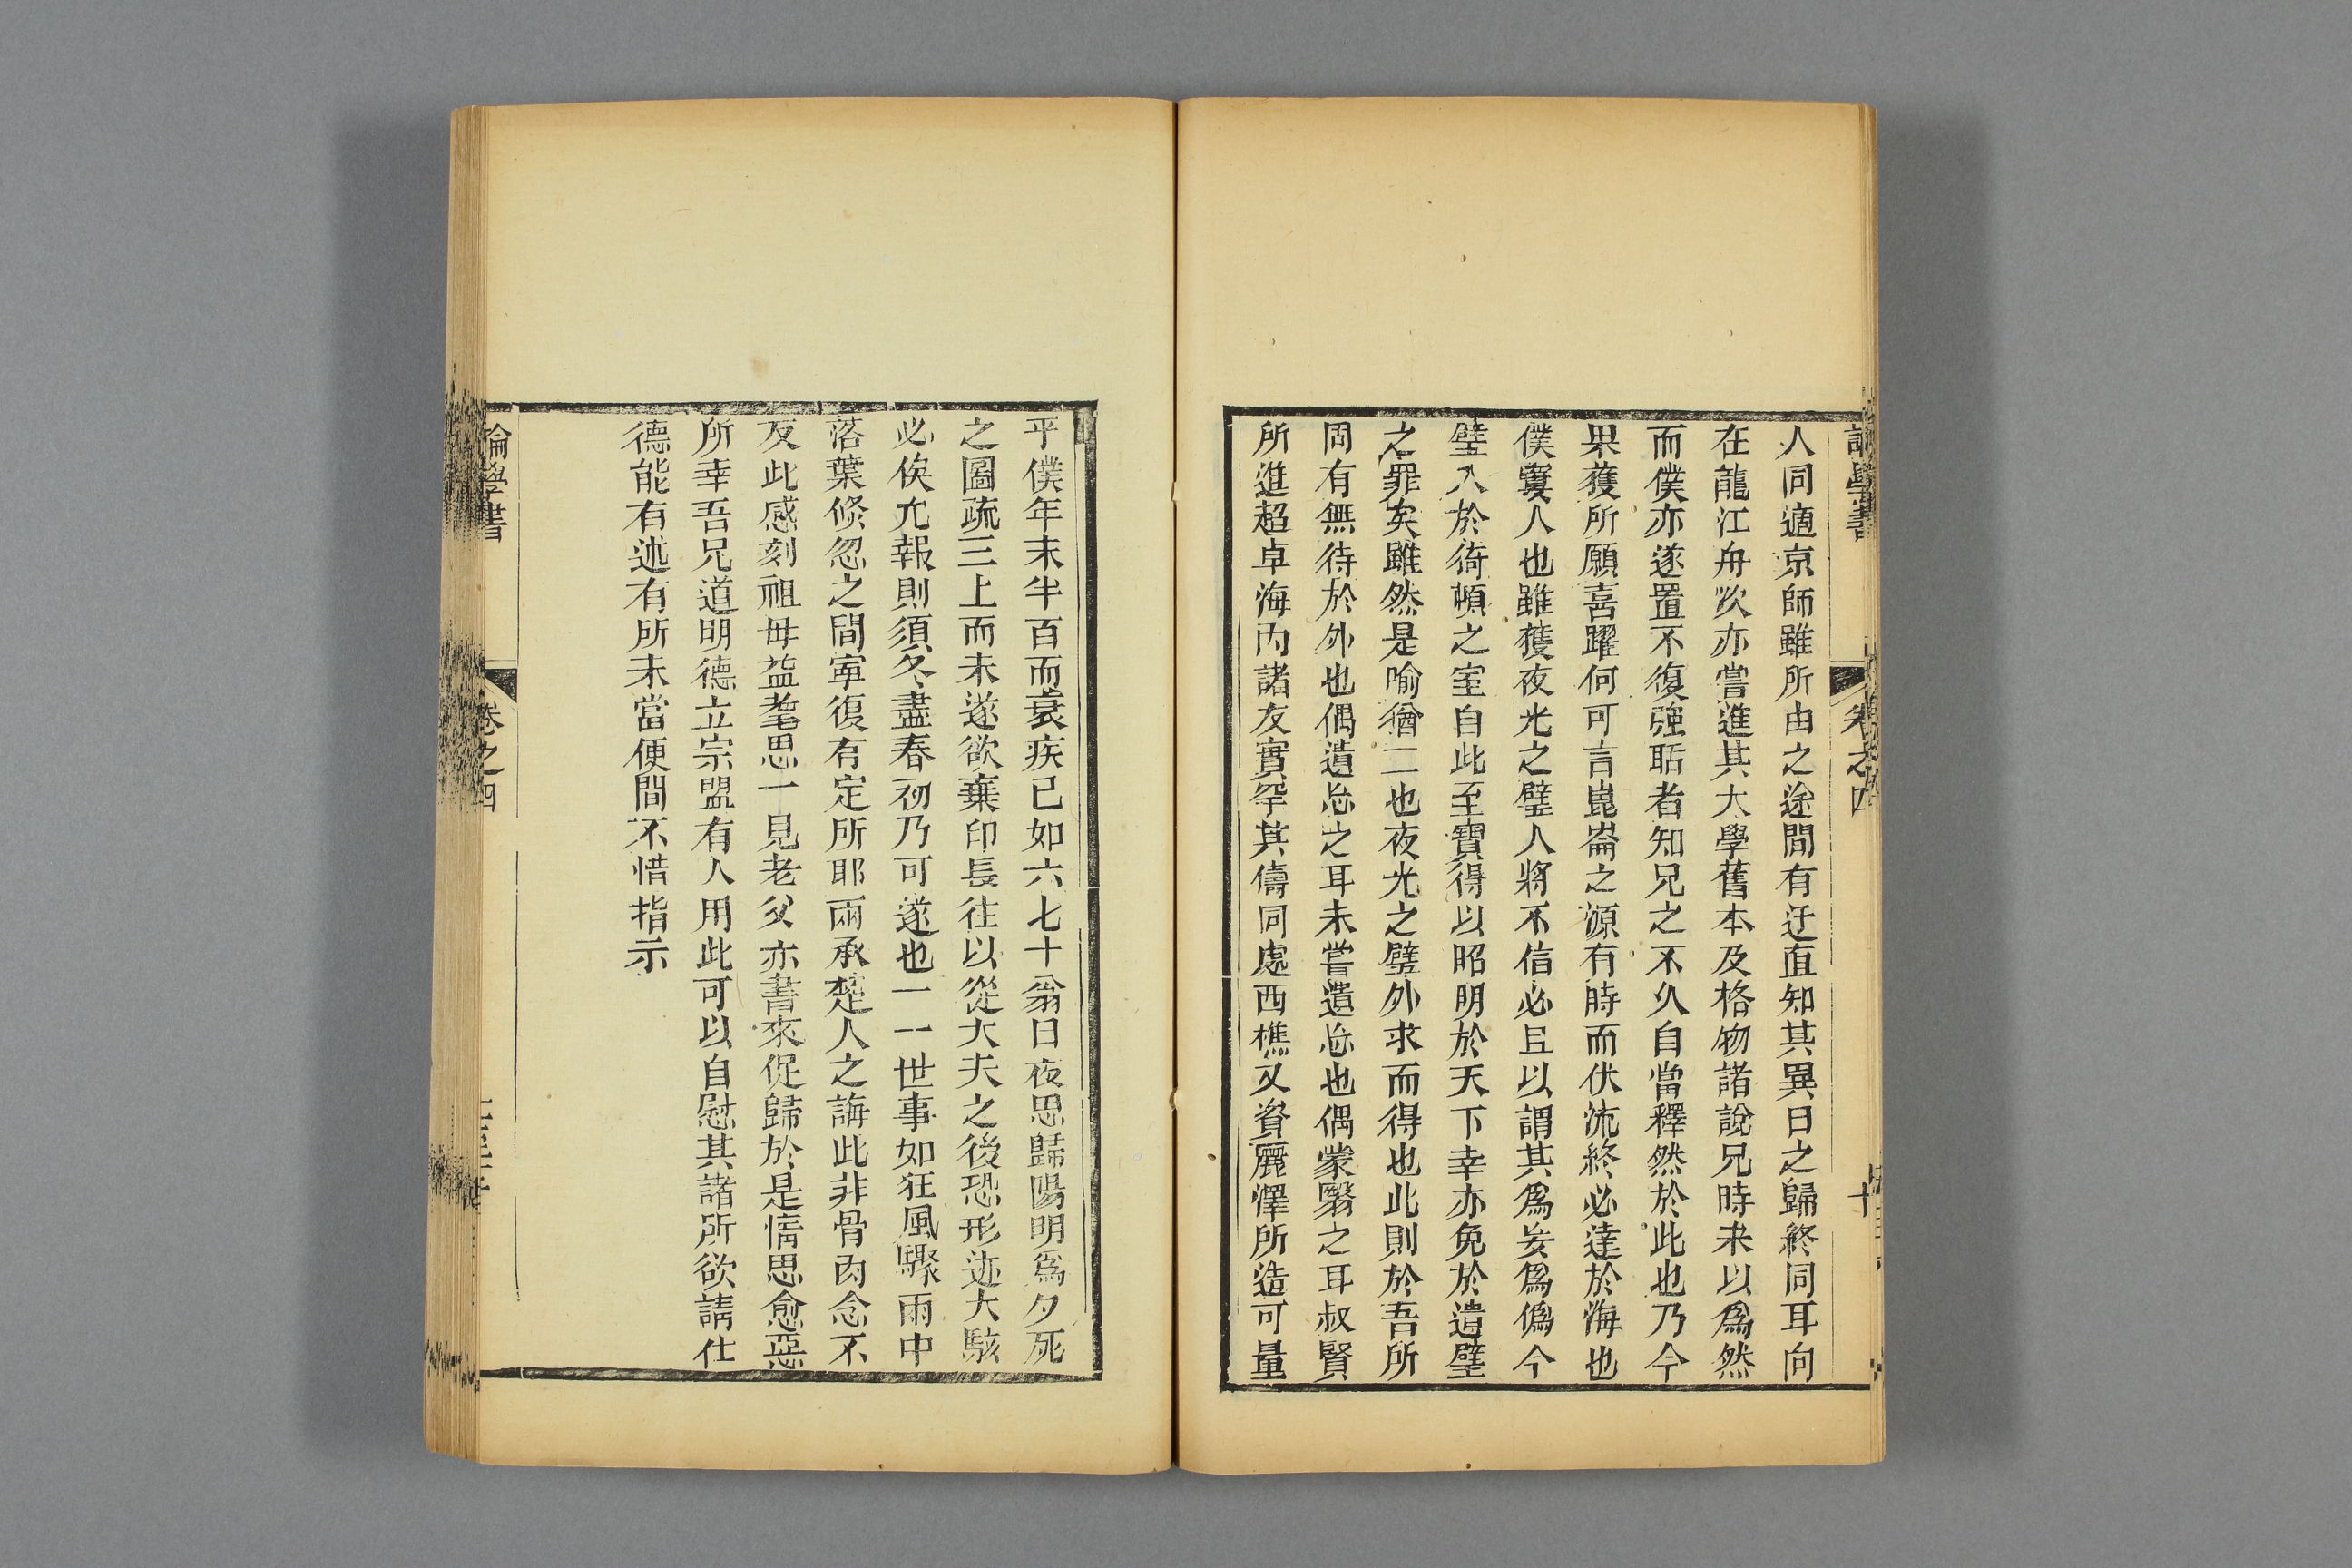 論學書 卷之四 十
人同適京師雖所由之途間有迂直知其異日之歸終同耳向
在龍江舟次亦嘗進其大學舊本及格物諸說兄時未以爲然
而僕亦遂置不復強聒者知兄之不久自當釋然於此也乃今
果獲所願喜躍何可言崑崙之源有時而伏流終必達於海也
僕窶人也雖獲夜光之璧人將不信必且以謂其爲妄爲僞今
璧入於猗頓之室自此至寶得以昭明於天下幸亦免於遺璧
之罪矣雖然是喻猶二也夜光之璧外求而得也此則於吾所
固有無待於外也偶遺忘之耳未嘗遺忘也偶蒙翳之耳叔賢
所進超卓海內諸友實罕其儔同處西樵又資麗澤所造可量
乎僕年未半百而衰疾已如六七十翁日夜思歸陽明爲夕死
之圖疏三上而未遂欲棄印長往以從大夫之後恐形迹大駭
必俟允報則須冬盡春初乃可遂也一一世事如狂風驟雨中
落葉倐忽之間寧復有定所耶兩承楚人之誨此非骨肉念不
及此感刻祖母益耄思一見老父亦書來促歸於是情思愈惡
所幸吾兄道明德立宗盟有人用此可以自慰其諸所欲請仕
德能有述有所未當便間不惜指示
論學書 卷之四